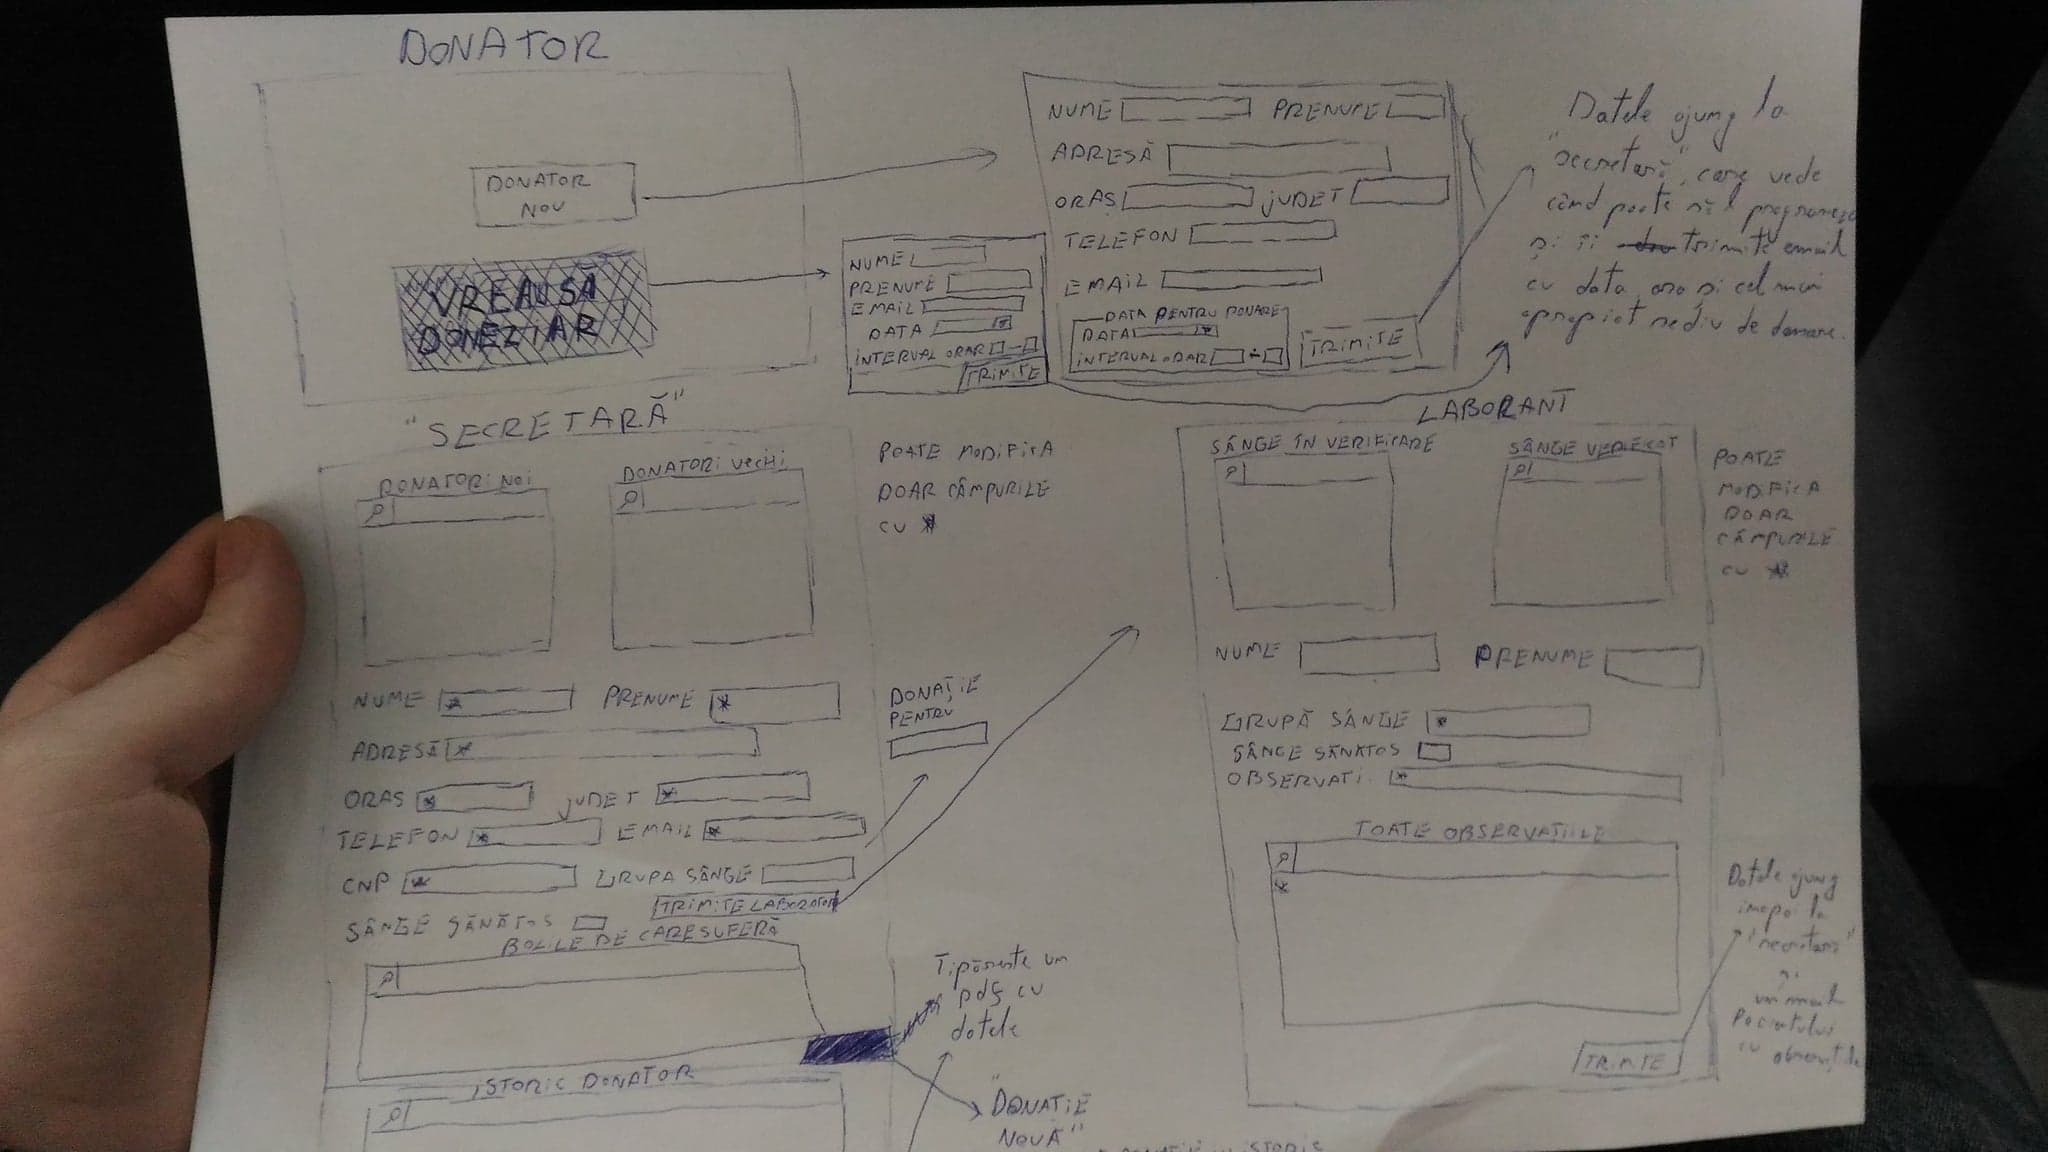 DONATOR
DONATOR
NOU
VREAU SĂ
DONEZ IAR
NUME
PRENUME
EMAIL
DATA
INTERVAL ORAR -
TRIMITE
NUME PRENUME
ADRESĂ
ORAȘ JUDET
TELEFON
EMAIL
DATA PENTRU DONARE
DATA
INTERVAL ORAR -
TRIMITE
Datele ajung la
"secretară", care vede
când poate să-l programeze
și îi trimite email
cu data, ora și cel mai
apropiat sediu de donare.
"SECRETARĂ"
DONATORI NOI DONATORI VECHI
POATE MODIFICA
DOAR CÂMPURILE
CU *
NUME * PRENUME *
ADRESĂ *
ORAS * JUDET *
TELEFON * EMAIL *
CNP * GRUPA SÂNGE
TRIMITE LABORATOR
SÂNGE SĂNĂTOS
BOLILE DE CARE SUFERĂ
ISTORIC DONATOR
DONAȚIE
PENTRU
Tipărește un
pdf cu
datele
"DONATIE
NOUĂ"
LABORANT
SÂNGE ÎN VERIFICARE SÂNGE VERIFICAT
POATE
MODIFICA
DOAR
CÂMPURILE
CU *
NUME PRENUME
GRUPĂ SÂNGE *
SÂNGE SĂNĂTOS
OBSERVATI *
TOATE OBSERVAȚIILE
*
TRIMITE
Datele ajung
inapoi la
"secretară"
și
un mail
Pacientului
cu observațiile
ISTORIC